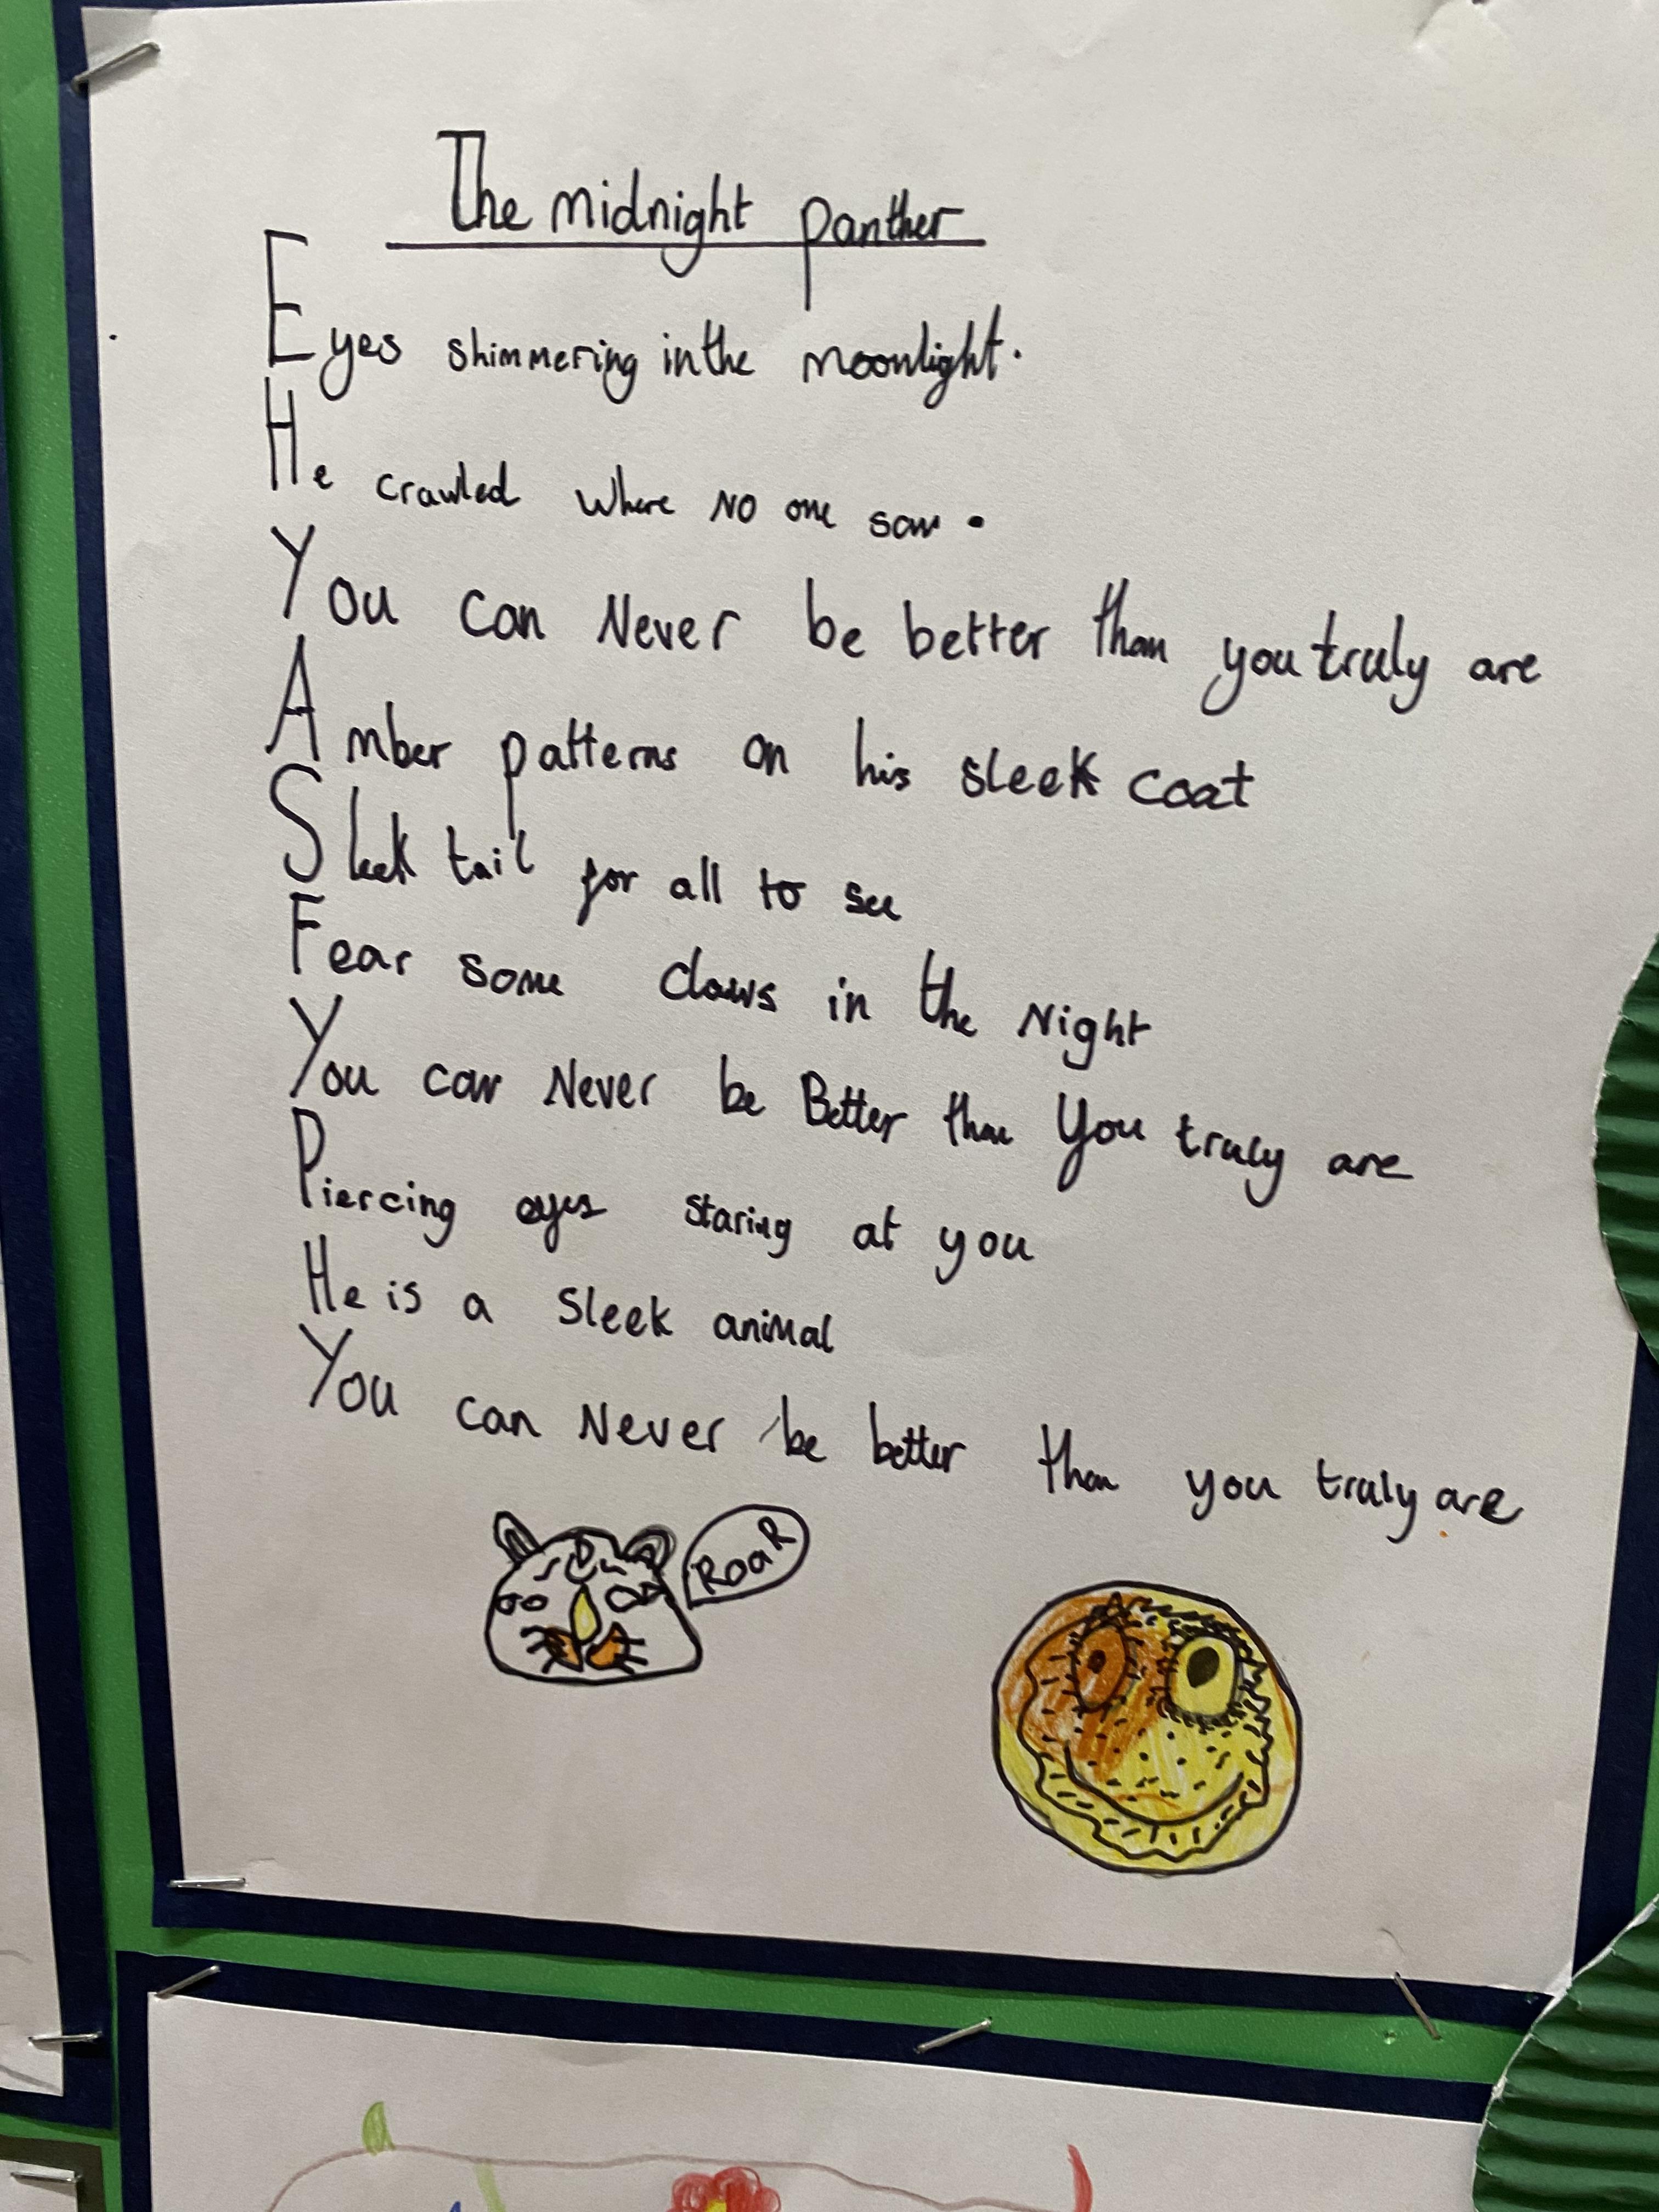 The midnight panther
Eyes shimmering in the moonlight.
He crawled where NO one saw.
You can Never be better than you truly are
Amber patterns on his sleek coat
Sleek tail for all to see
Fear some claws in the Night
You can Never be Better than You truly are
Piercing eyes staring at you
He is a Sleek animal
You can Never be better than you truly are
RoaR